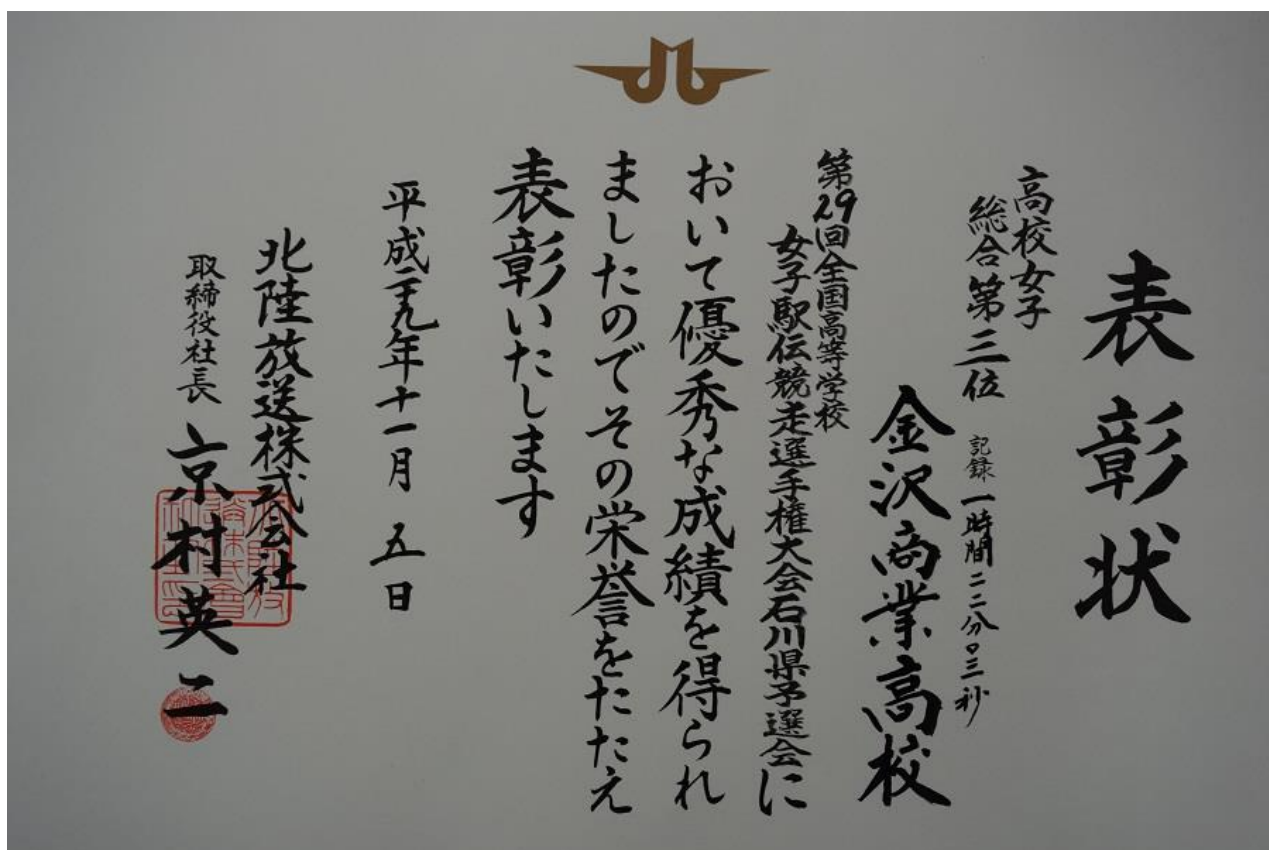 表彰状
高校女子
総合第三位 記録 一時間二二分〇三秒
金沢商業高校
第29回全国高等学校
女子駅伝競走選手権大会石川県予選会に
おいて優秀な成績を得られ
ましたのでその栄誉をたたえ
表彰いたします
平成二十九年十一月五日
北陸放送株式会社
取締役社長 京村英二